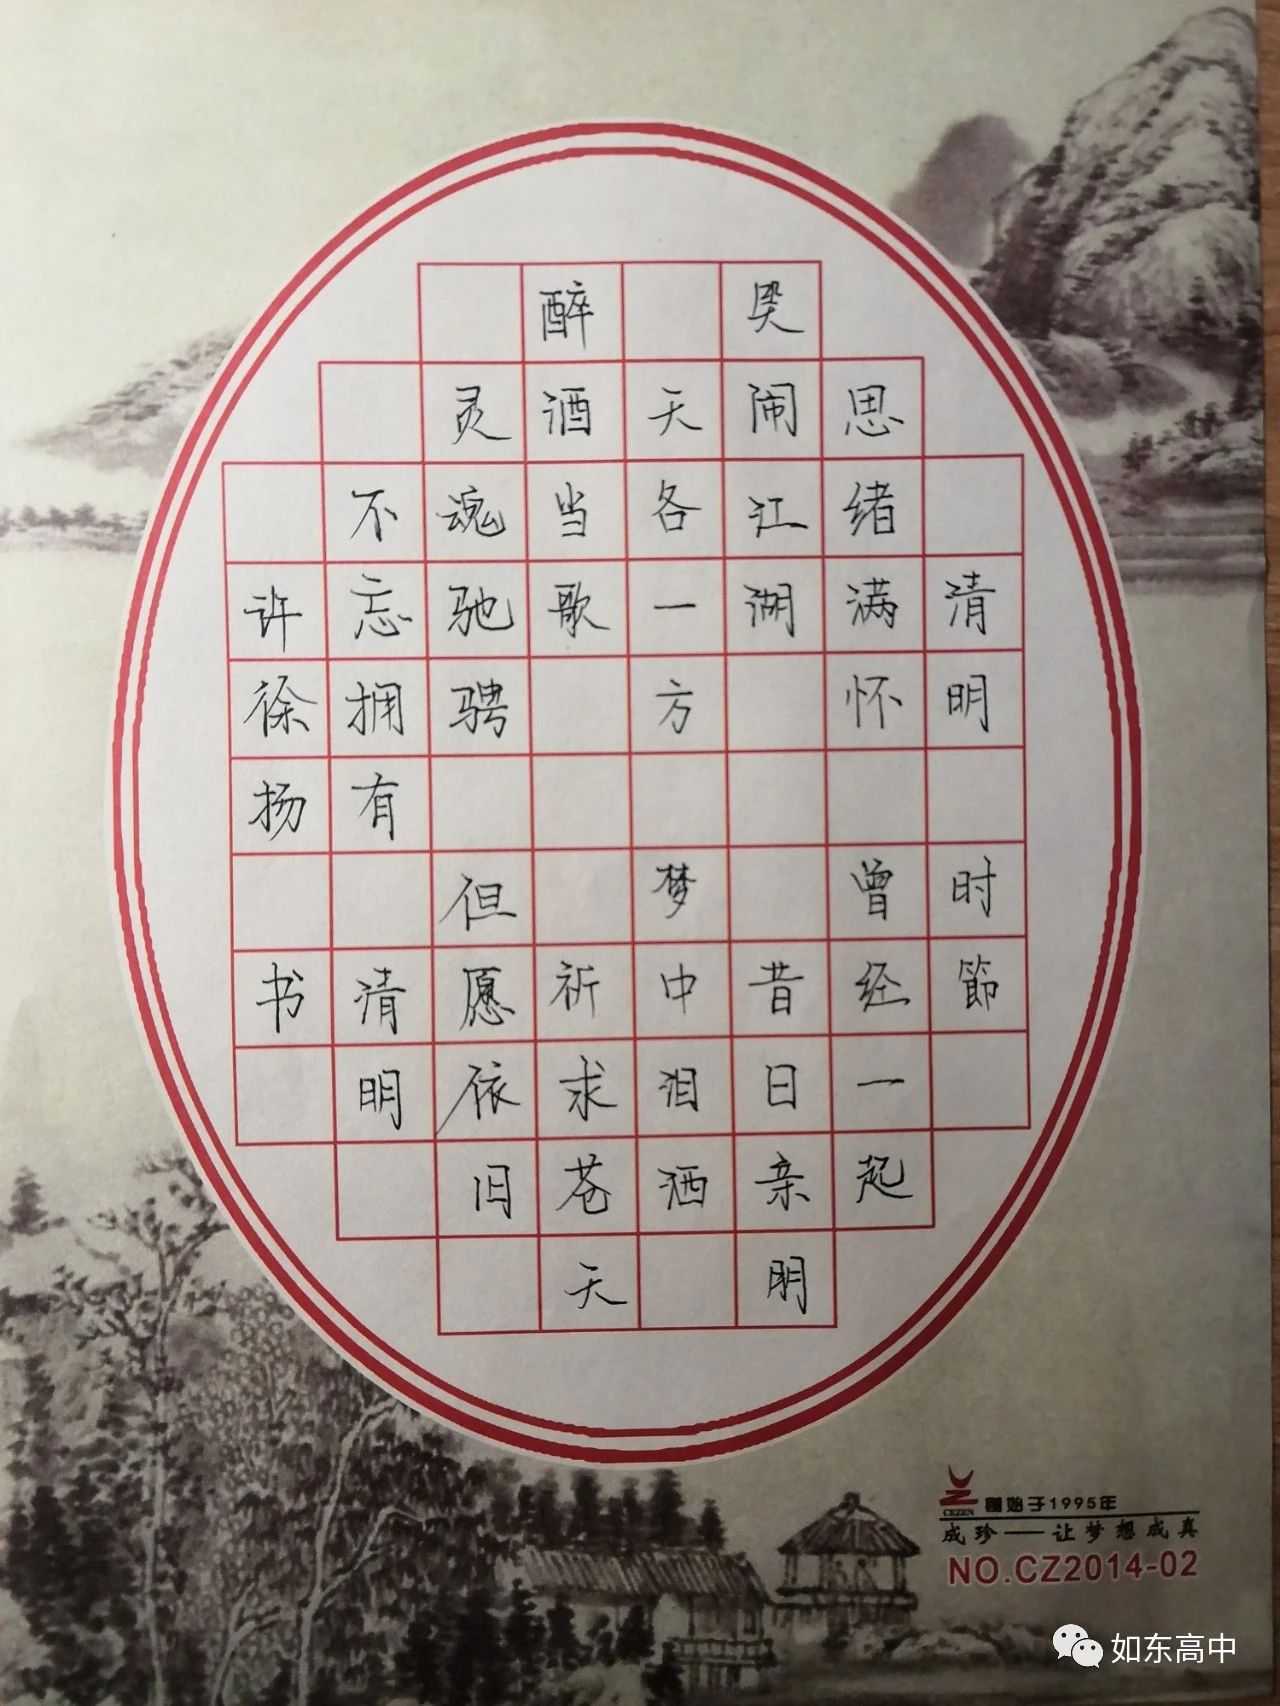 清明 时節
思绪满怀 曾经一起
闹江湖 昔日亲朋
天各一方 梦中泪洒
醉酒当歌 祈求苍天
灵魂驰骋 但愿依旧
不忘拥有 清明
许徐扬 书
CEZEN 創始于1995年
成珍——让梦想成真
NO.CZ2014-02
如东高中